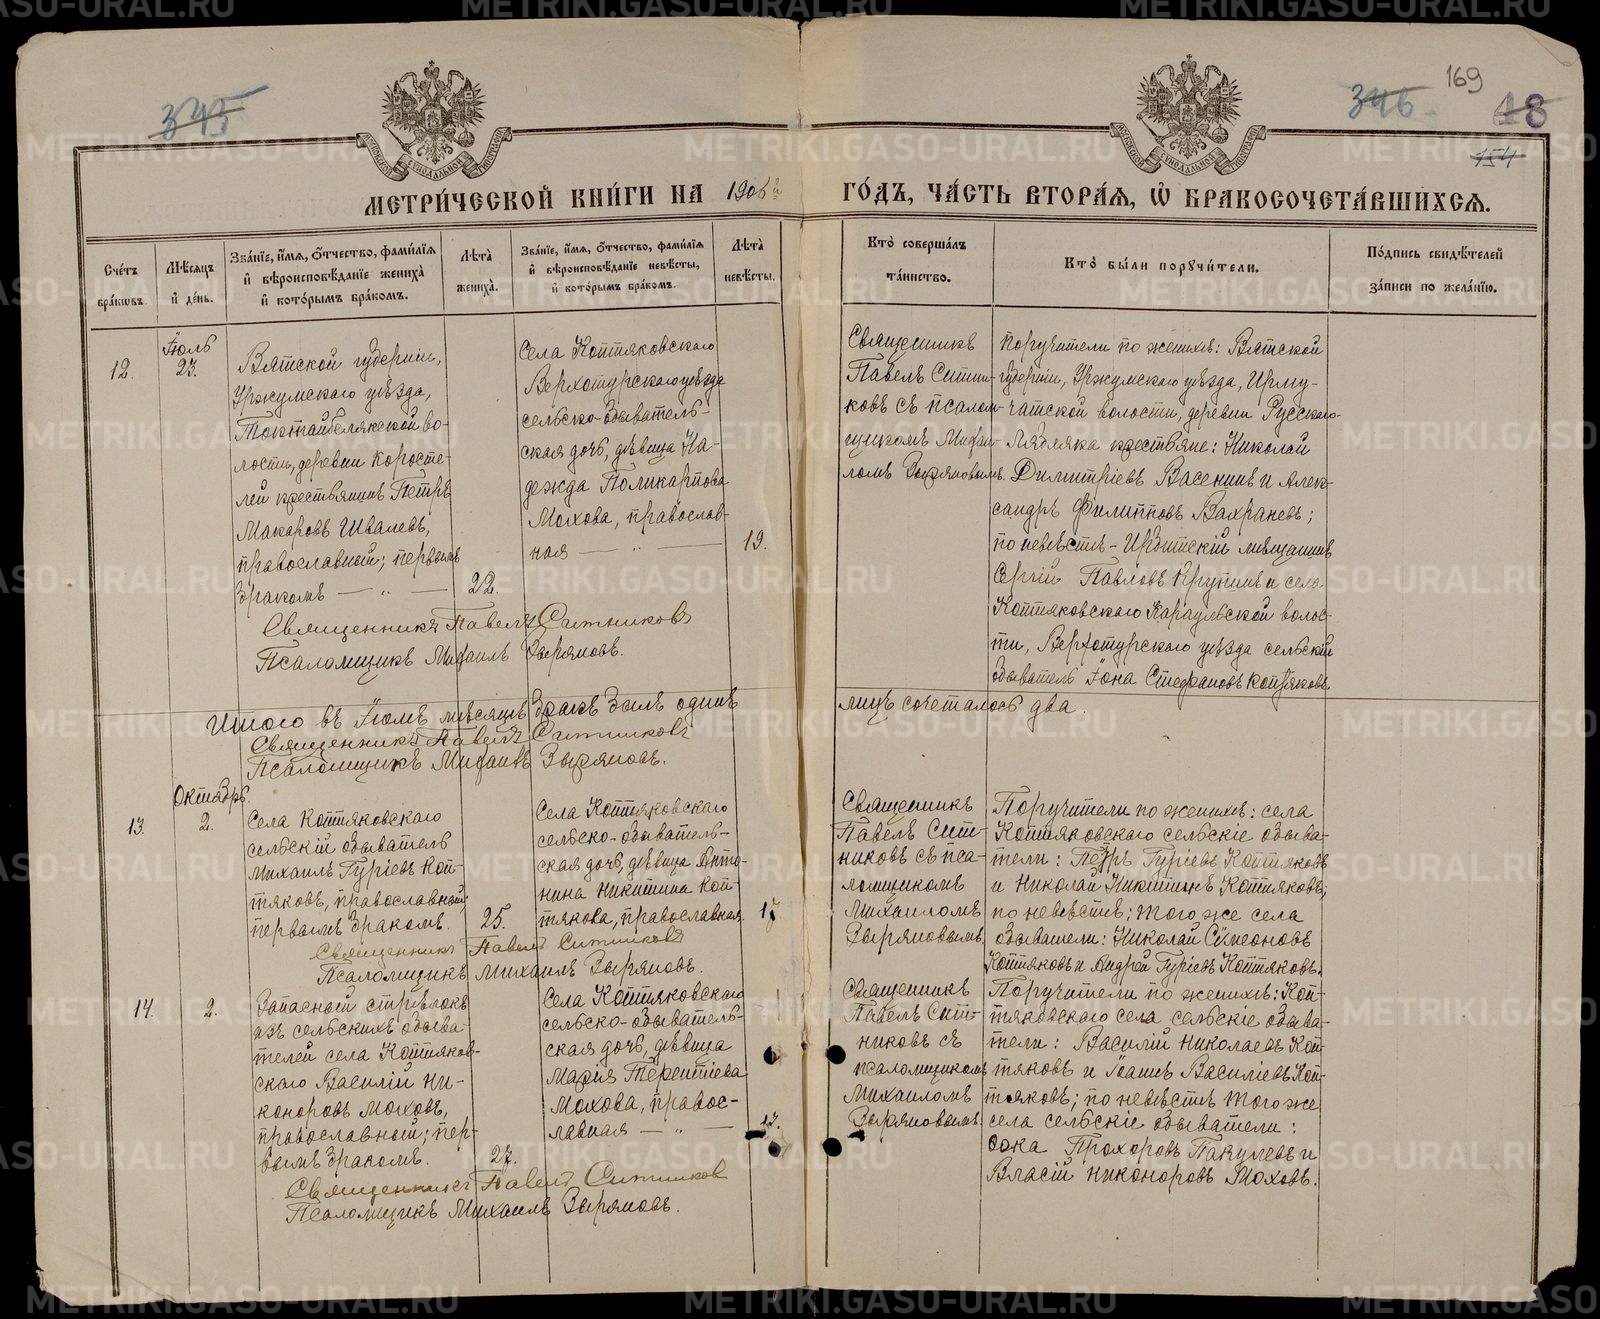 345
346.
169
48
154
МЕТРИ́ЧЕСКОЙ КНИ́ГИ НА 1906й
ГО́ДЪ, ЧА́СТЬ ВТОРА́Я, Ѡ БРАКОСОЧЕТА́ВШИХСЯ.
Сче́тъ бра́ковъ.
Мѣ́сяцъ и де́нь.
Зва́нїе, и́мя, о́тчество, фами́лїя
и вѣроисповѣ́данїе жениха̀
и кото́рымъ бра́комъ.
Лѣ́та жениха̀.
Зва́нїе, и́мя, о́тчество, фами́лїя
и вѣроисповѣ́данїе невѣ́сты,
и кото́рымъ бра́комъ.
Лѣ́та невѣ́сты.
Кто̀ соверша́лъ
та́инство.
Кто̀ бы́ли поручи́тели.
По́дпись свидѣ́телей
за́писи по жела́нїю.
12.
Іюль
23.
Вятской губерніи,
Уржумскаго уѣзда,
Токтайбелякской во-
лости, деревни Коросте-
лей крестьянинъ Петръ
Макаровъ Швалевъ,
православный; первымъ
бракомъ — „ —
22.
Села Коптяковскаго
Верхотурскаго уѣзда
сельско-обыватель-
ская дочь, дѣвица На-
дежда Поликарпова
Мохова, православ-
ная — „ —
19.
Священникъ
Павелъ Ситни-
ковъ съ псалом-
щикомъ Михаи-
ломъ Зыряновымъ.
Поручители по женихѣ: Вятской
губерніи, Уржумскаго уѣзда,
чатской волости, деревни Русскаго
крестьяне: Николай
Димитріевъ Васенинъ и Алек-
сандръ Филипповъ Вахраневъ;
по невѣстѣ - Ирбитскій мѣщанинъ
Сергій Павловъ Крутинъ и села
Коптяковскаго Караульской волос-
ти, Верхотурскаго уѣзда сельскій
обыватель Іона Стефановъ Коптяковъ.
Священникъ Павелъ Ситниковъ
Псаломщикъ Михаилъ Зыряновъ.
Итого въ Іюлѣ мѣсяцѣ бракъ былъ одинъ
лицъ сочеталось два.
Священникъ Павелъ Ситниковъ
Псаломщикъ Михаилъ Зыряновъ.
13.
Октябрь.
2.
Села Коптяковскаго
сельскій обыватель
Михаилъ Гуріевъ Коп-
тяковъ, православный;
первымъ бракомъ.
25.
Села Коптяковскаго
сельско-обыватель-
ская дочь, дѣвица Анто-
нина Никитина Коп-
тякова, православная.
17
Священникъ
Павелъ Сит-
никовъ съ пса-
ломщикомъ
Михаиломъ
Зыряновымъ.
Поручители по женихѣ: села
Коптяковскаго сельскіе обыва-
тели: Петръ Гуріевъ Коптяковъ
и Николай Никитинъ Коптяковъ;
по невѣстѣ; того же села
обыватели: Николай Сѵмеоновъ
Коптяковъ и Андрей Гуріевъ Коптяковъ.
Священникъ Павелъ Ситниковъ
Псаломщикъ Михаилъ Зыряновъ.
14.
2.
Запасный стрѣлокъ
изъ сельскихъ обыва-
телей села Коптяков-
скаго Василій Ни-
коноровъ Моховъ,
православный; пер-
вымъ бракомъ.
27.
Села Коптяковскаго
сельско-обыватель-
ская дочь, дѣвица
Марія Терентіева
Мохова, правос-
лавная — „ —
17.
Священникъ
Павелъ Сит-
никовъ съ
псаломщикомъ
Михаиломъ
Зыряновымъ.
Поручители по женихѣ: Коп-
тяковскаго села сельскіе обыва-
тели: Василій Николаевъ Коп-
тяковъ и Іоаннъ Василіевъ Коп-
тяковъ; по невѣстѣ того же
села сельскіе обыватели:
Фока Прохоровъ Пакулевъ и
Власій Никоноровъ Моховъ.
Священникъ Павелъ Ситниковъ
Псаломщикъ Михаилъ Зыряновъ.
METRIKI.GASO-URAL.RU